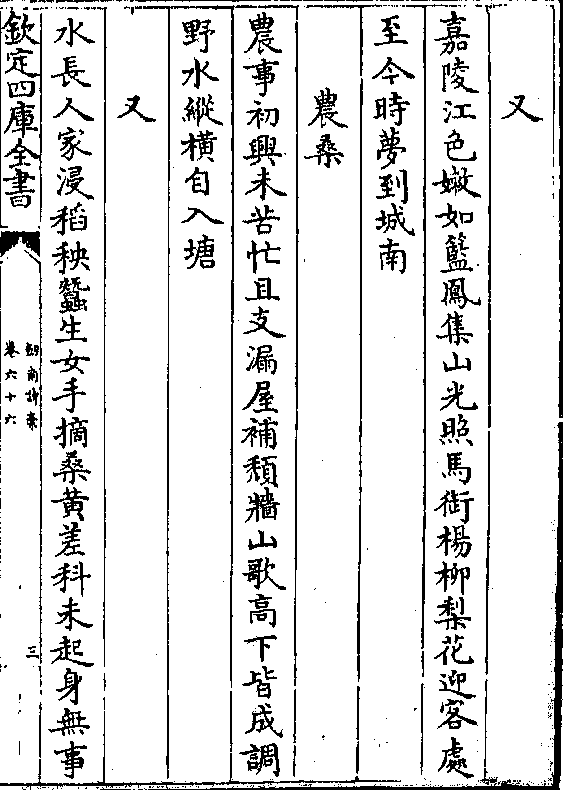 又
嘉陵江色嫩如籃鳳集山光照馬銜楊柳梨花迎客處
至今時夢到城南
農桑
農事初興未苦忙且支漏屋補頽牆山歌髙下皆成調
野水縱橫自入塘
又
水長人家浸稻秧蠶生女手摘桑黄差科未起身無事
欽定四庫全書
劎南詩槀
卷六十六
三